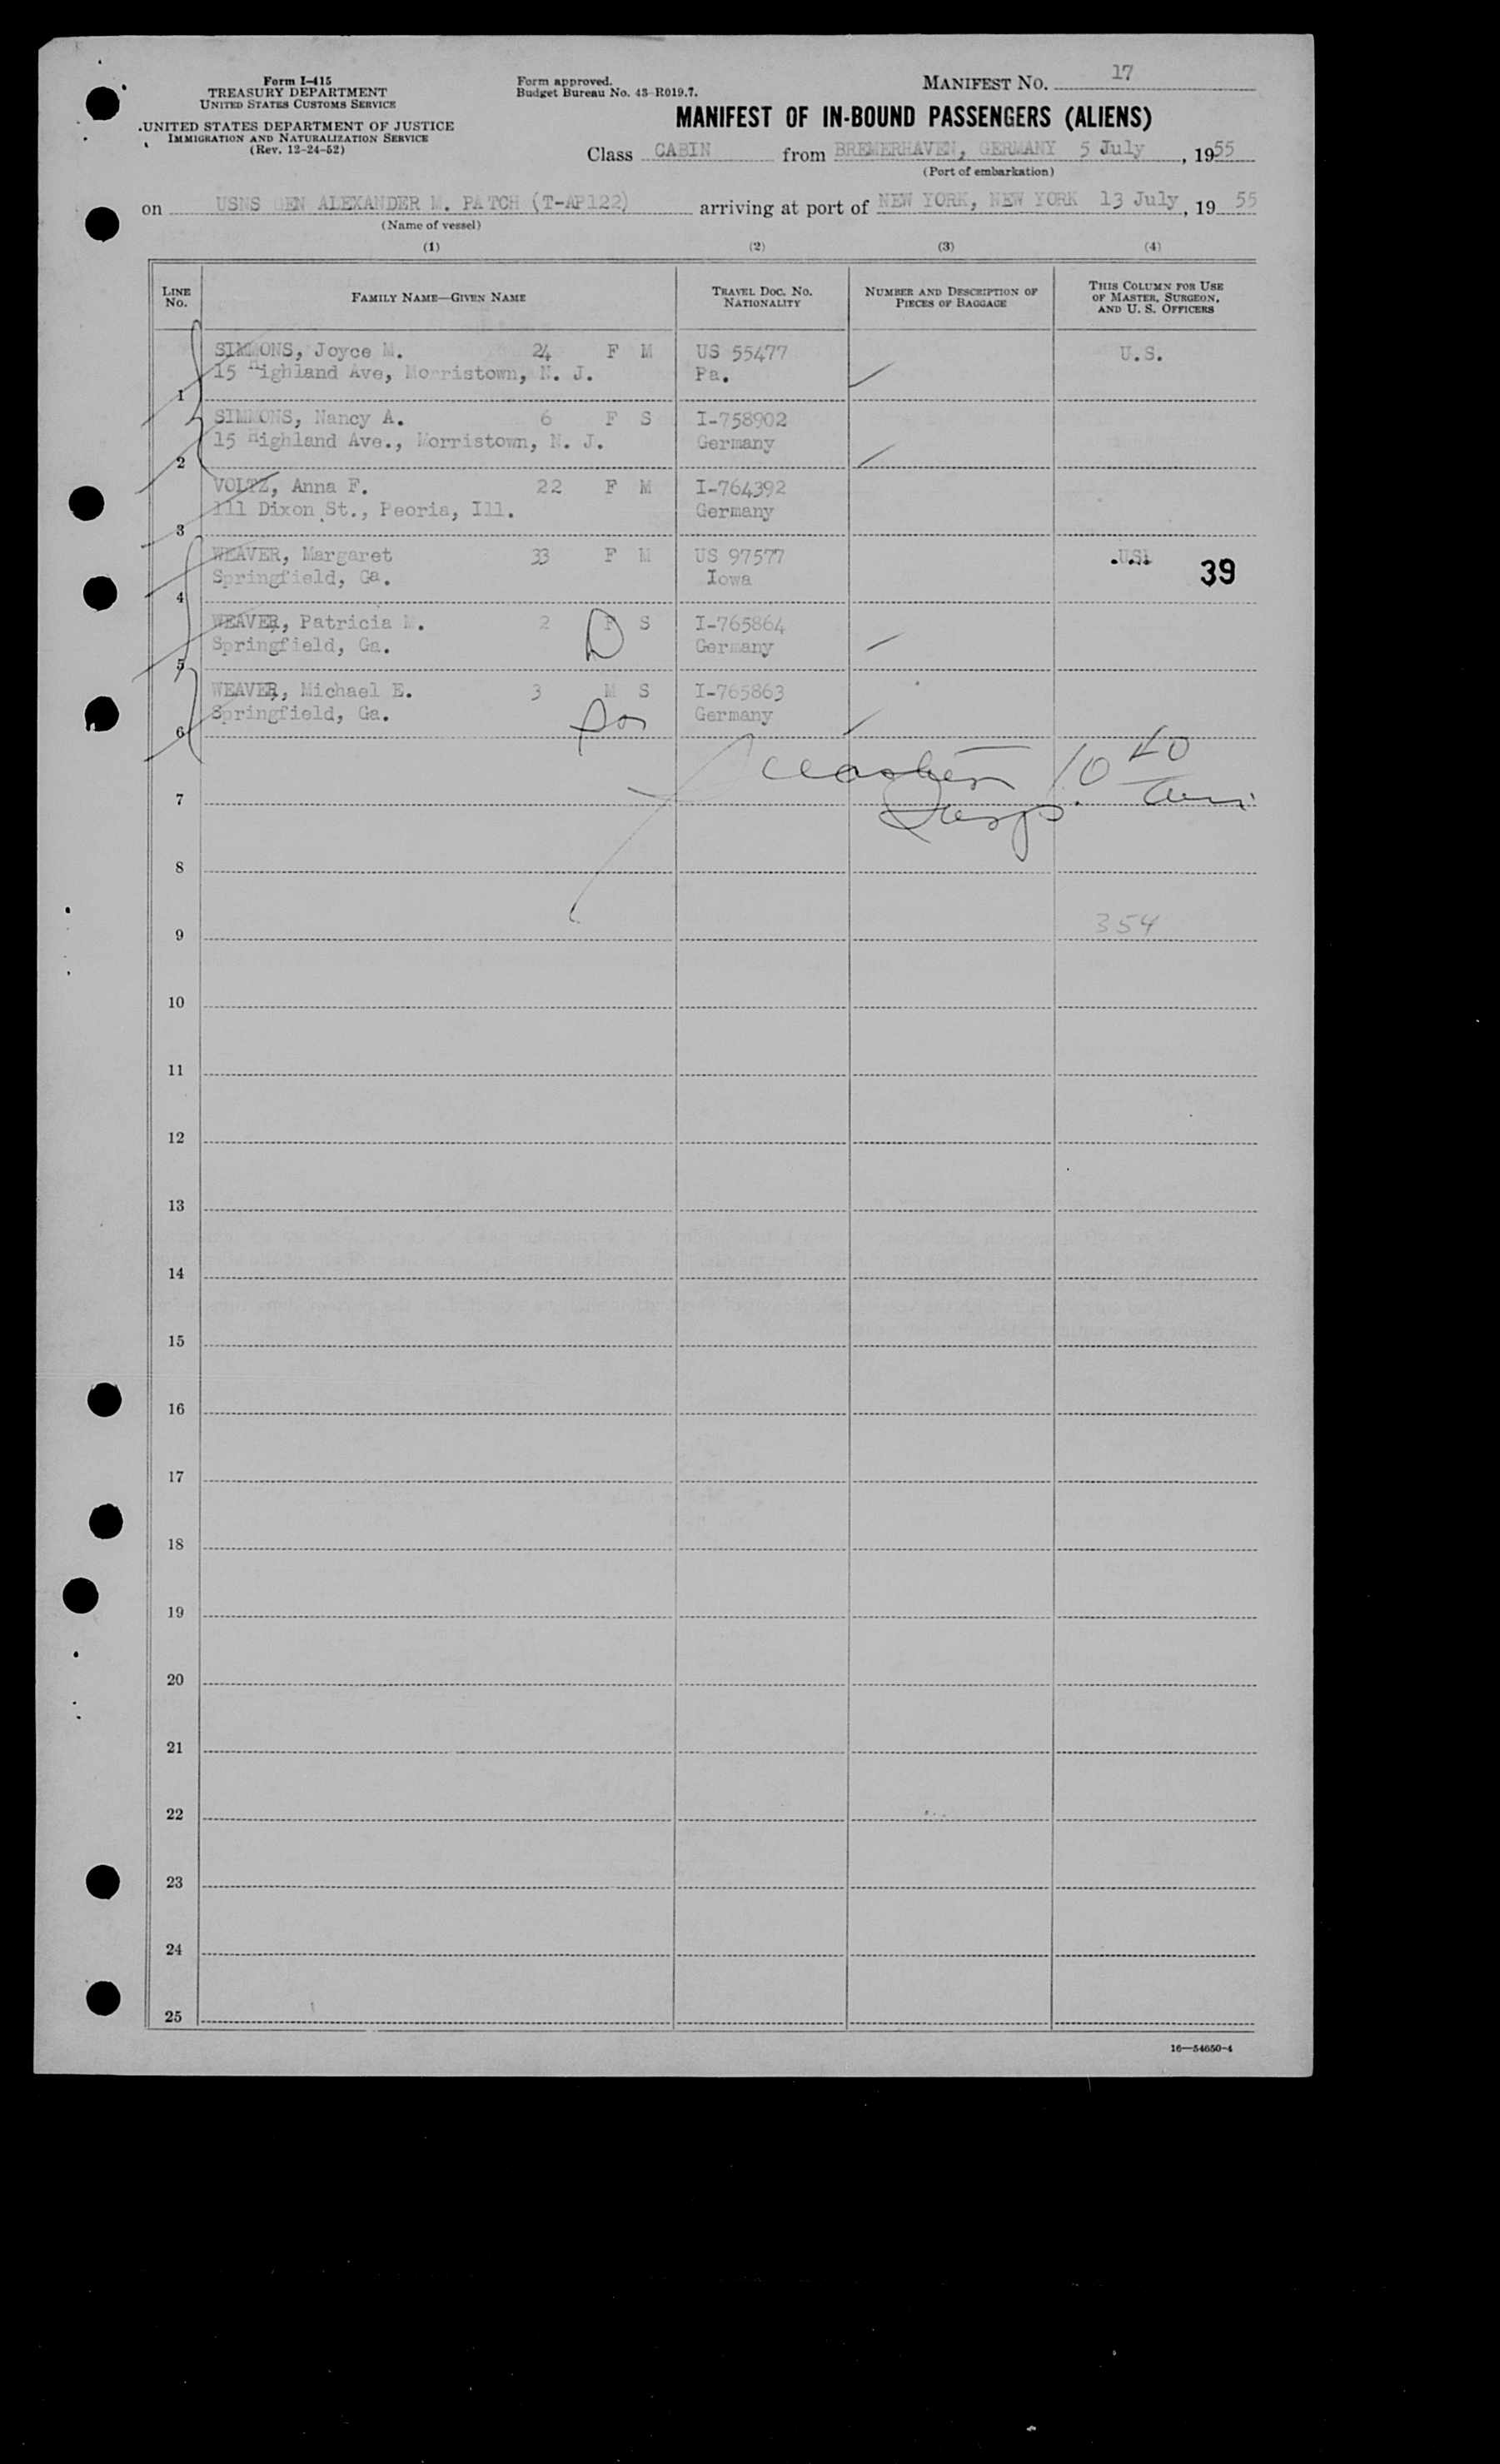 Form I-415
TREASURY DEPARTMENT
UNITED STATES CUSTOMS SERVICE
UNITED STATES DEPARTMENT OF JUSTICE
IMMIGRATION AND NATURALIZATION SERVICE
(Rev. 12-24-52)
Form approved.
Budget Bureau No. 43-R019.7.
MANIFEST NO. 17
MANIFEST OF IN-BOUND PASSENGERS (ALIENS)
Class CABIN from BREMERHAVEN, GERMANY 5 July, 1955
(Port of embarkation)
on USNS GEN ALEXANDER M. PATCH (T-AP122) arriving at port of NEW YORK, NEW YORK 13 July, 19 55
(Name of vessel)
(1) (2) (3) (4)
LINE NO. FAMILY NAME—GIVEN NAME TRAVEL DOC. NO. NATIONALITY NUMBER AND DESCRIPTION OF PIECES OF BAGGAGE THIS COLUMN FOR USE OF MASTER, SURGEON, AND U. S. OFFICERS
SIMMONS, Joyce M. 24 F M US 55477 U.S.
15 Highland Ave, Morristown, N. J. Pa.
1
SIMMONS, Nancy A. 6 F S I-758902
15 Highland Ave., Morristown, N. J. Germany
2
VOLTZ, Anna F. 22 F M I-764392
111 Dixon St., Peoria, Ill. Germany
3
WEAVER, Margaret 33 F M US 97577 39
Springfield, Ga. Iowa
4
WEAVER, Patricia M. 2 F S I-765864
Springfield, Ga. Germany
5
WEAVER, Michael E. 3 M S I-765863
Springfield, Ga. Germany
6
10 40
7
8
354
9
10
11
12
13
14
15
16
17
18
19
20
21
22
23
24
25
16—54650-4